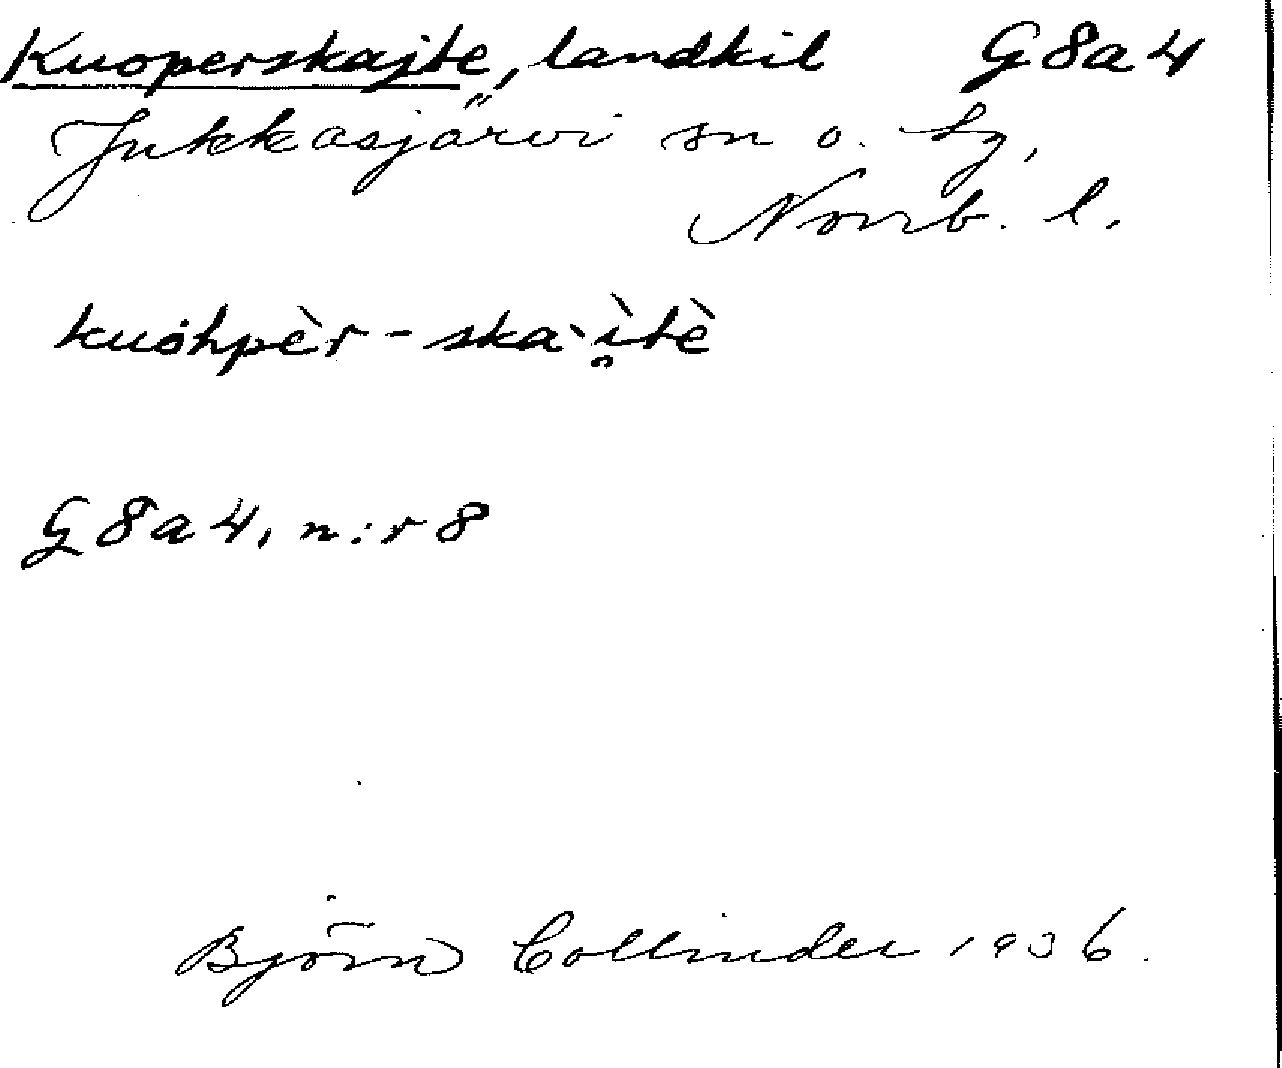 Kuoperskajte, landkil G8a4
Jukkasjärvi sn o. tg,
Norrb. l.
kuȯhpèr-skaˋì̯tè
G8a4, n:r 8
Björn Collinder 1936.